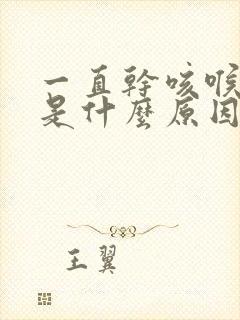 一直幹咳喉
是什麼原因
王翼